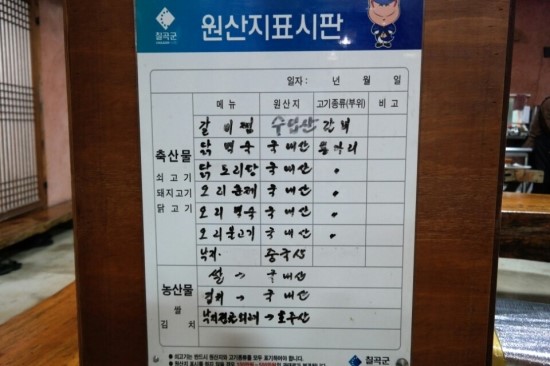 칠곡군
원산지표시판
일자 : 년 월 일
메뉴 원산지 고기종류(부위) 비고
갈비찜 수입산 갈비
축산물
쇠고기
돼지고기
닭고기
닭백숙 국내산 울아리
닭도리탕 국내산 〃
오리훈제 국내산 〃
오리백숙 국내산 〃
오리불고기 국내산 〃
낙지. 중국산
농산물
쌀
김치
쌀 → 국내산
김치 → 국내산
→ 중국산
● 쇠고기는 반드시 원산지와 고기종류를 모두 표기하여야 합니다.
칠곡군